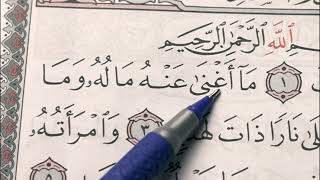 ٱللَّهِ ٱلرَّحْمَٰنِ ٱلرَّحِيمِ
١ مَآ أَغْنَىٰ عَنْهُ مَالُهُۥ وَمَا
نَارًا ذَاتَ ٣ وَٱمْرَأَتُهُۥ